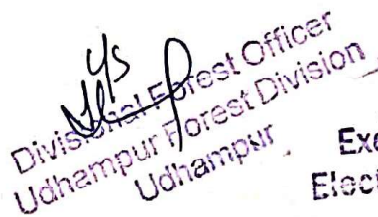 Divisional Forest Officer
Udhampur Forest Division
Udhampur
Exe
Elect